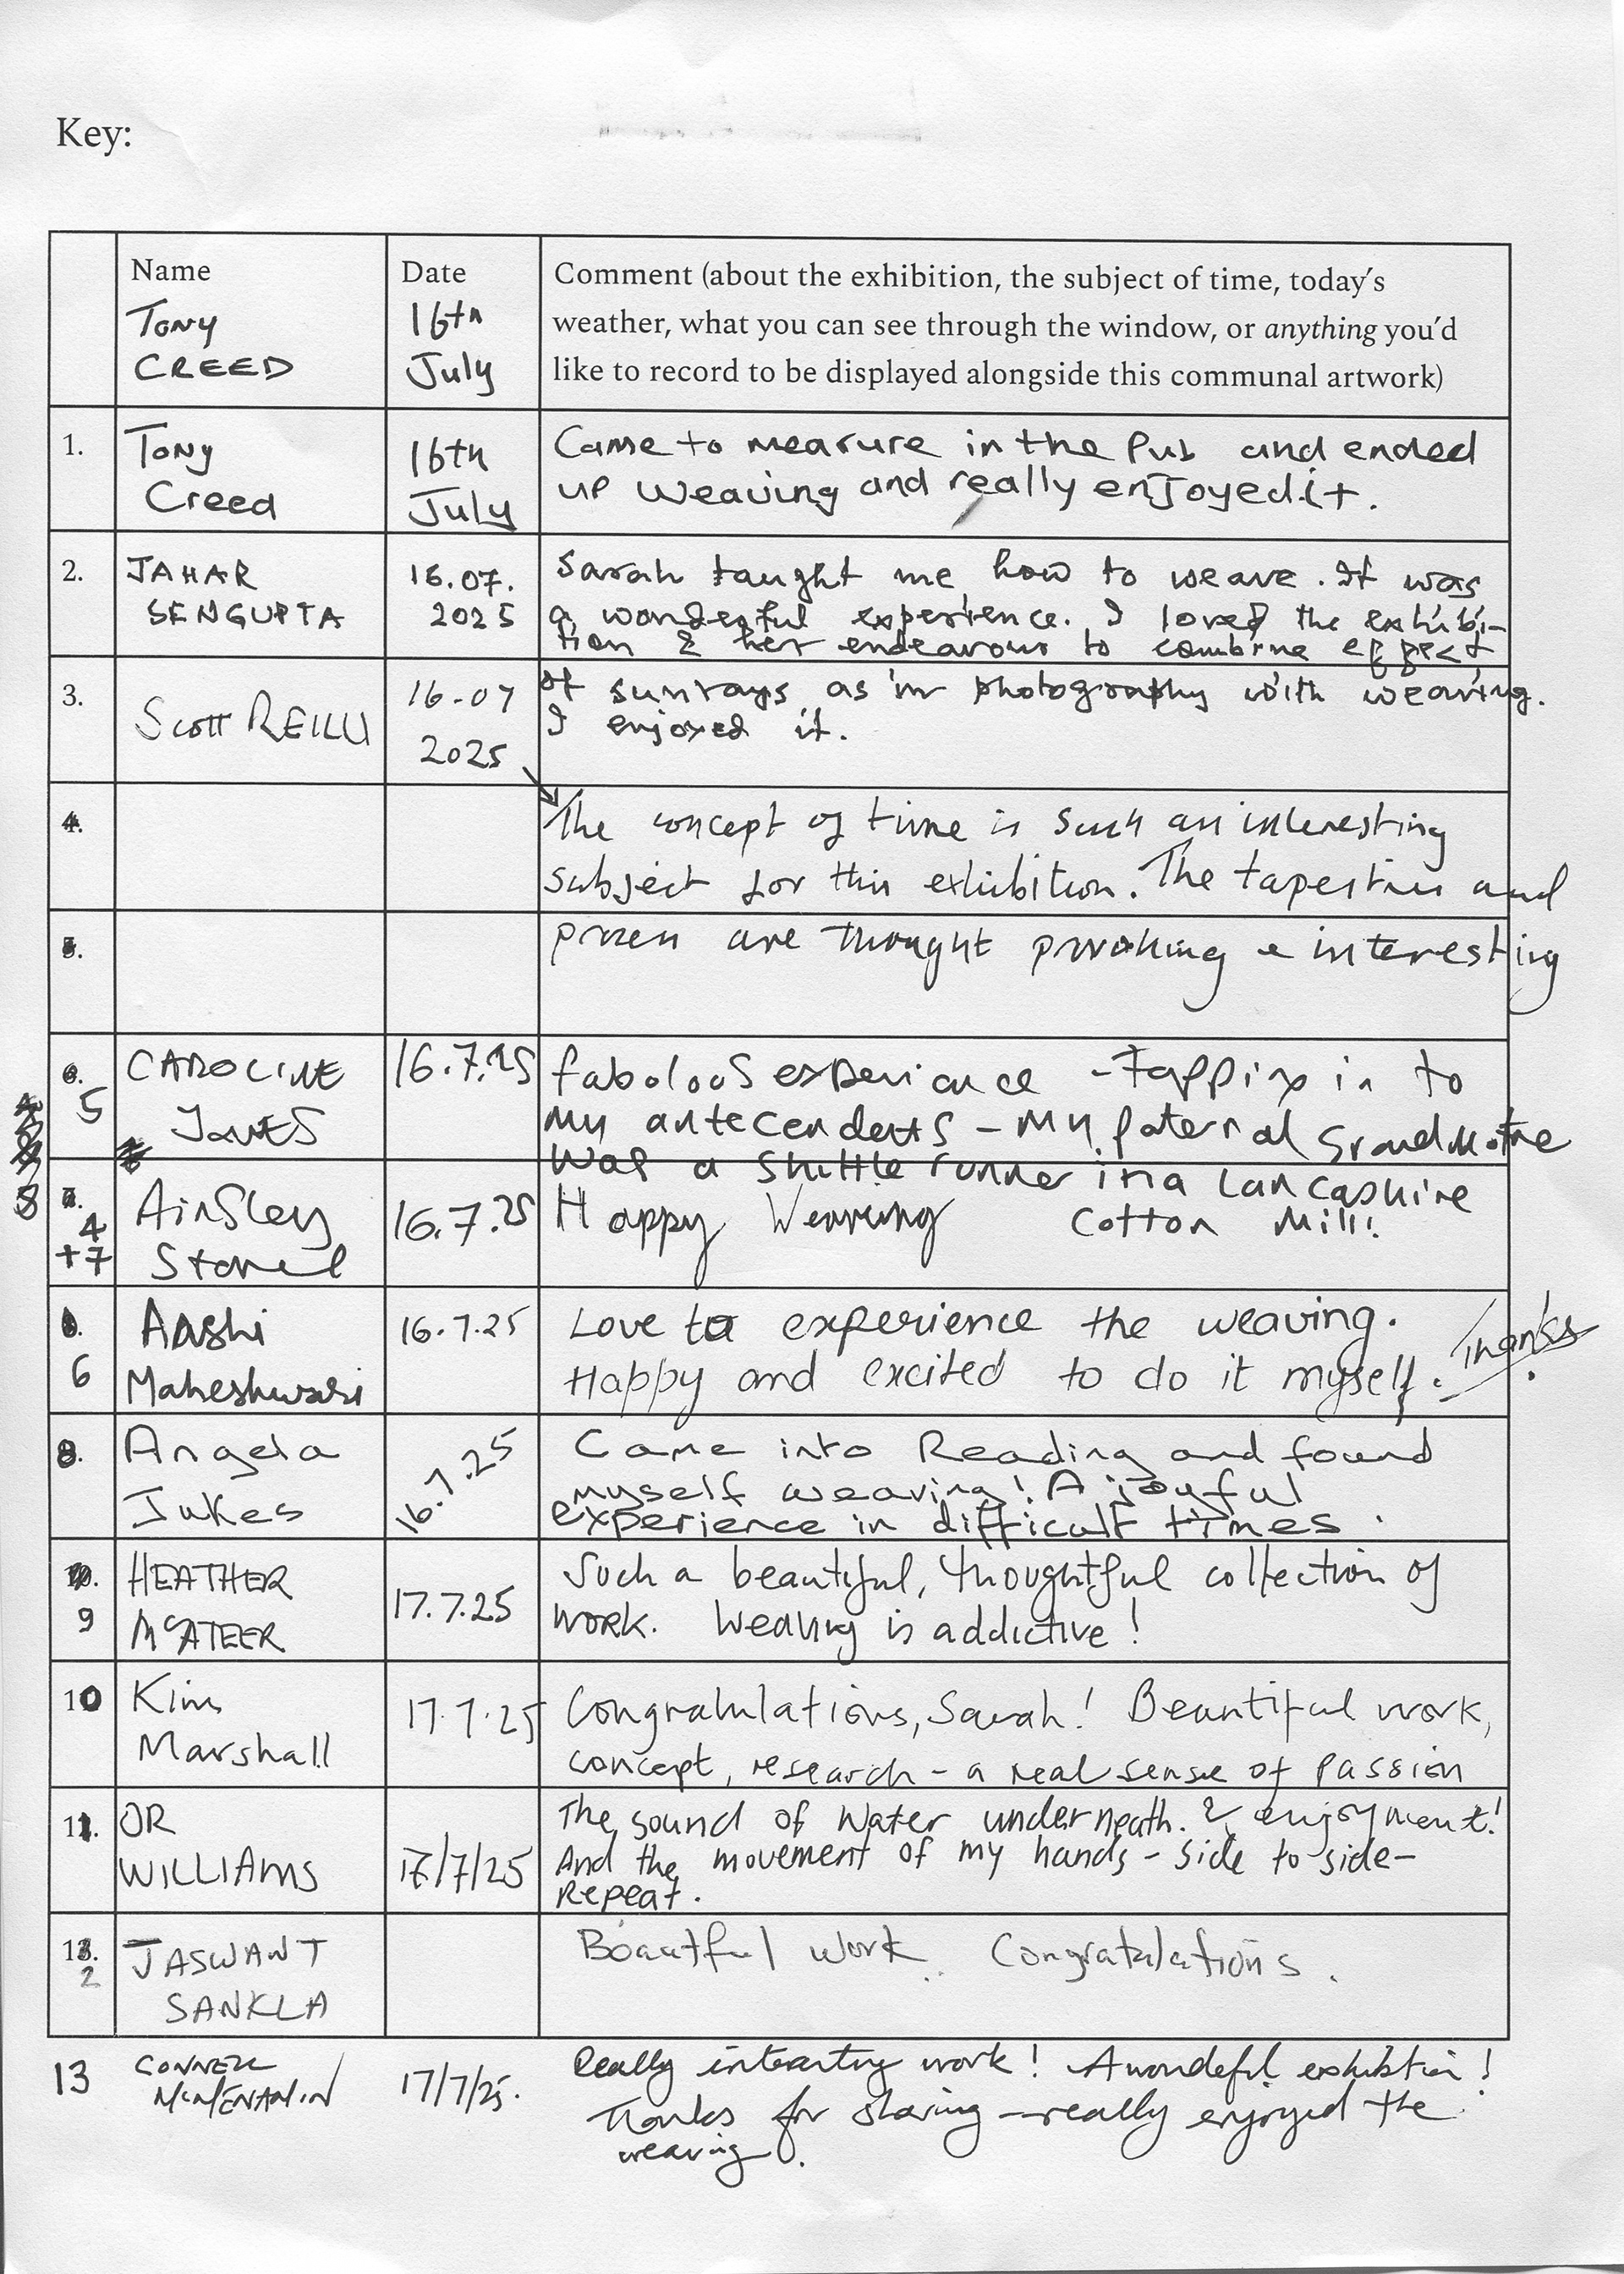 Key:
Name Date Comment (about the exhibition, the subject of time, today's
weather, what you can see through the window, or anything you'd
like to record to be displayed alongside this communal artwork)
Tony 16th
CREED July
1. Tony 16th Came to measure in the Pub and ended
Creed July up weaving and really enjoyed it.
2. JAHAR 16.07. Sarah taught me how to weave. It was
SENGUPTA 2025 a wonderful experience. I loved the exhibi-
tion & her endeavour to combine effect
3. Scott REILLY 16-07 of sunrays as in photography with weaving.
2025 I enjoyed it.
4. The concept of time is such an interesting
subject for this exhibition. The tapestries and
5. are thought provoking & interesting
6. CAROLINE 16.7.25 fabolous experiance - Tapping in to
5 JONES My antecendents - My paternal Grandmothe
was a shuttle runner in a Lancashire
Cotton Mill!
7. Ainsley 16.7.25 Happy Weaving
4
+7
8. Aashi 16.7.25 Love to experience the weaving.
6 Maheshwari Happy and excited to do it myself. Thanks
8. Angela 16.7.25 Came into Reading and found
Jukes myself weaving! A joyful
experience in difficult times.
10. HEATHER 17.7.25 Such a beautiful, thoughtful collection of
9 McATEER work. Weaving is addictive!
10 Kim 17.7.25 Congratulations, Sarah! Beautiful work,
Marshall concept, research - a real sense of passion
& enjoyment!
11. OR 17/7/25 The sound of Water underneath.
WILLIAMS And the movement of my hands - side to side -
Repeat.
12 JASWANT Boautful work. Congratulations.
SANKLA
13 CONNELL 17/7/25. Really interesting work! A wonderful exhibition!
McMENAMIN Thanks for sharing - really enjoyed the
weaving.